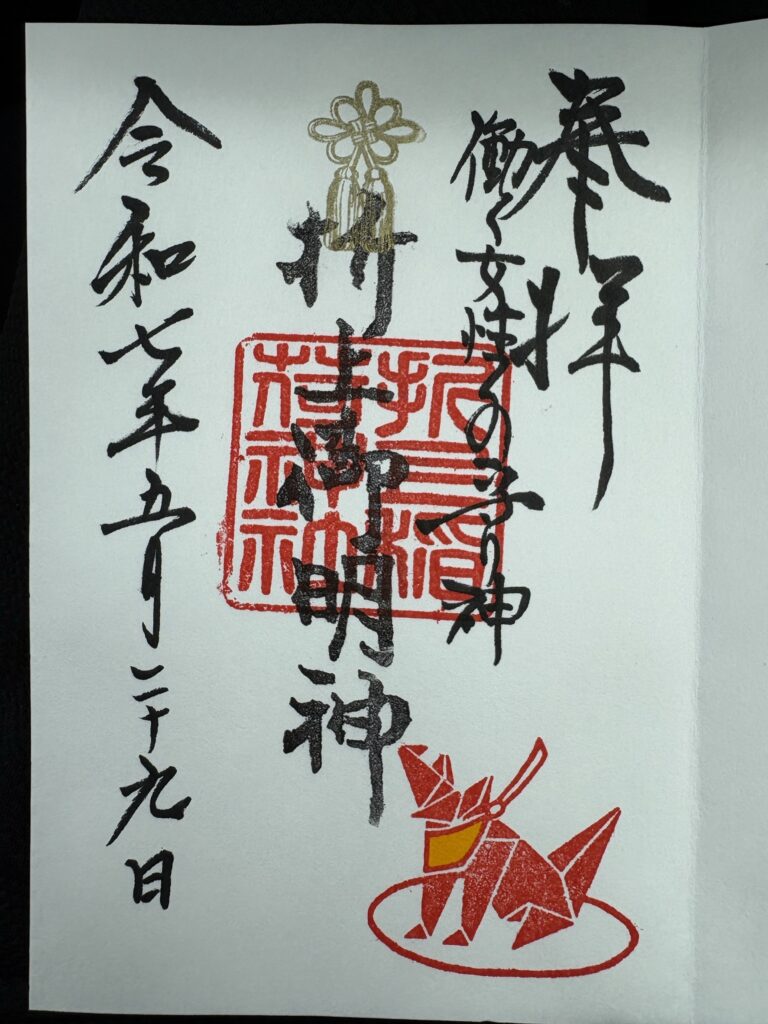 奉拝
働く女性の守り神
折上御明神
折上稲
荷神社
令和七年五月二十九日